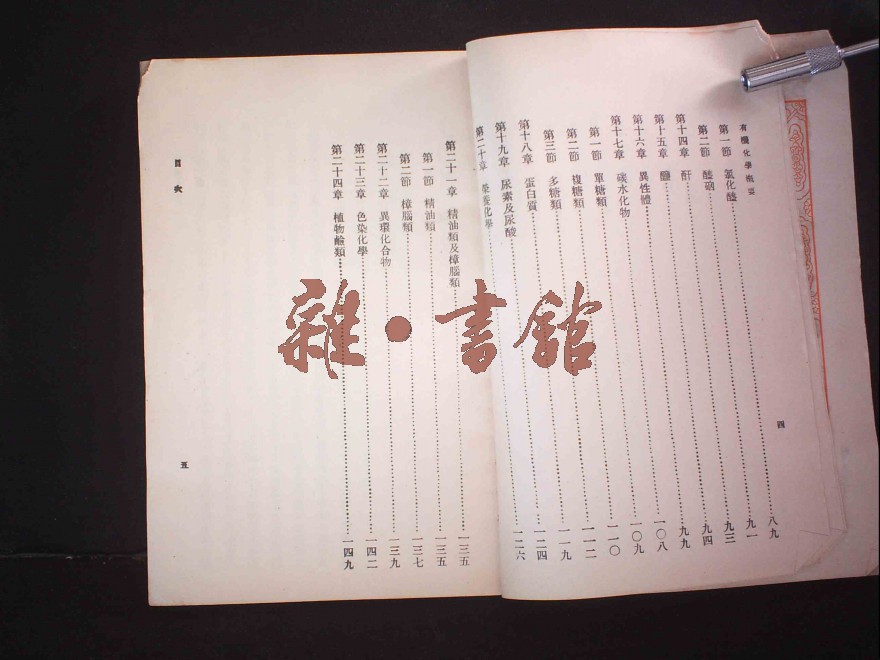 有機化學概論
四
八九
第一節 氯化醚 九一
第二節 九三
第十四章 酐 九四
第十五章 九九
第十六章 異性體 一〇八
第十七章 碳水化物 一〇九
第一節 單糖類 一一〇
第二節 複糖類 一一二
第三節 多糖類 一一九
第十八章 蛋白質 一二四
第十九章 尿素及尿酸 一二六
第二十章 營養化學
第二十一章 精油類及樟腦類 一三五
第一節 精油類 一三五
第二節 樟腦類 一三七
第二十二章 異環化合物 一三九
第二十三章 色染化學 一四二
第二十四章 植物鹼類 一四九
目次
五
雜·書館